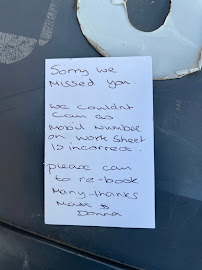 Sorry we
Missed you.
we couldnt
Call as
Mobil Number
on work sheet
is incorrect.
please call
to re-book
Many thanks
Mark &
Donna